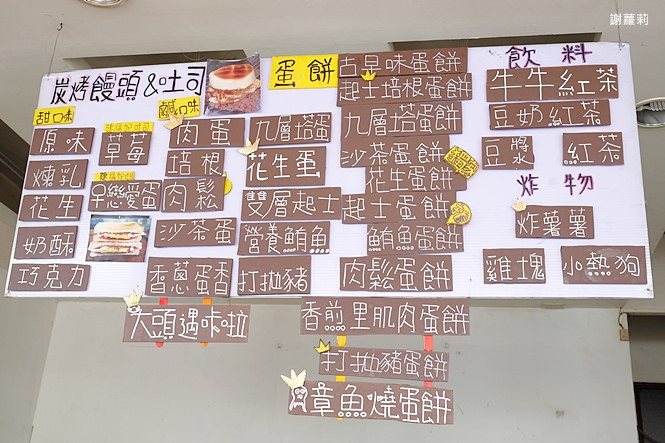 謝蘿莉
炭烤饅頭&吐司
甜口味
鹹口味
原味
煉乳
花生
奶酥
巧克力
草莓
早戀愛蛋
肉蛋
培根
肉鬆
沙茶蛋
香蔥蛋香
大頭遇咔啦
九層塔蛋
花生蛋
雙層起士
營養鮪魚
打拋豬
蛋餅
古早味蛋餅
起士培根蛋餅
九層塔蛋餅
沙茶蛋餅
花生蛋餅
起士蛋餅
鮪魚蛋餅
肉鬆蛋餅
香煎里肌肉蛋餅
打拋豬蛋餅
章魚燒蛋餅
飲料
牛牛紅茶
豆奶紅茶
豆漿
紅茶
炸物
炸薯薯
雞塊
小熱狗